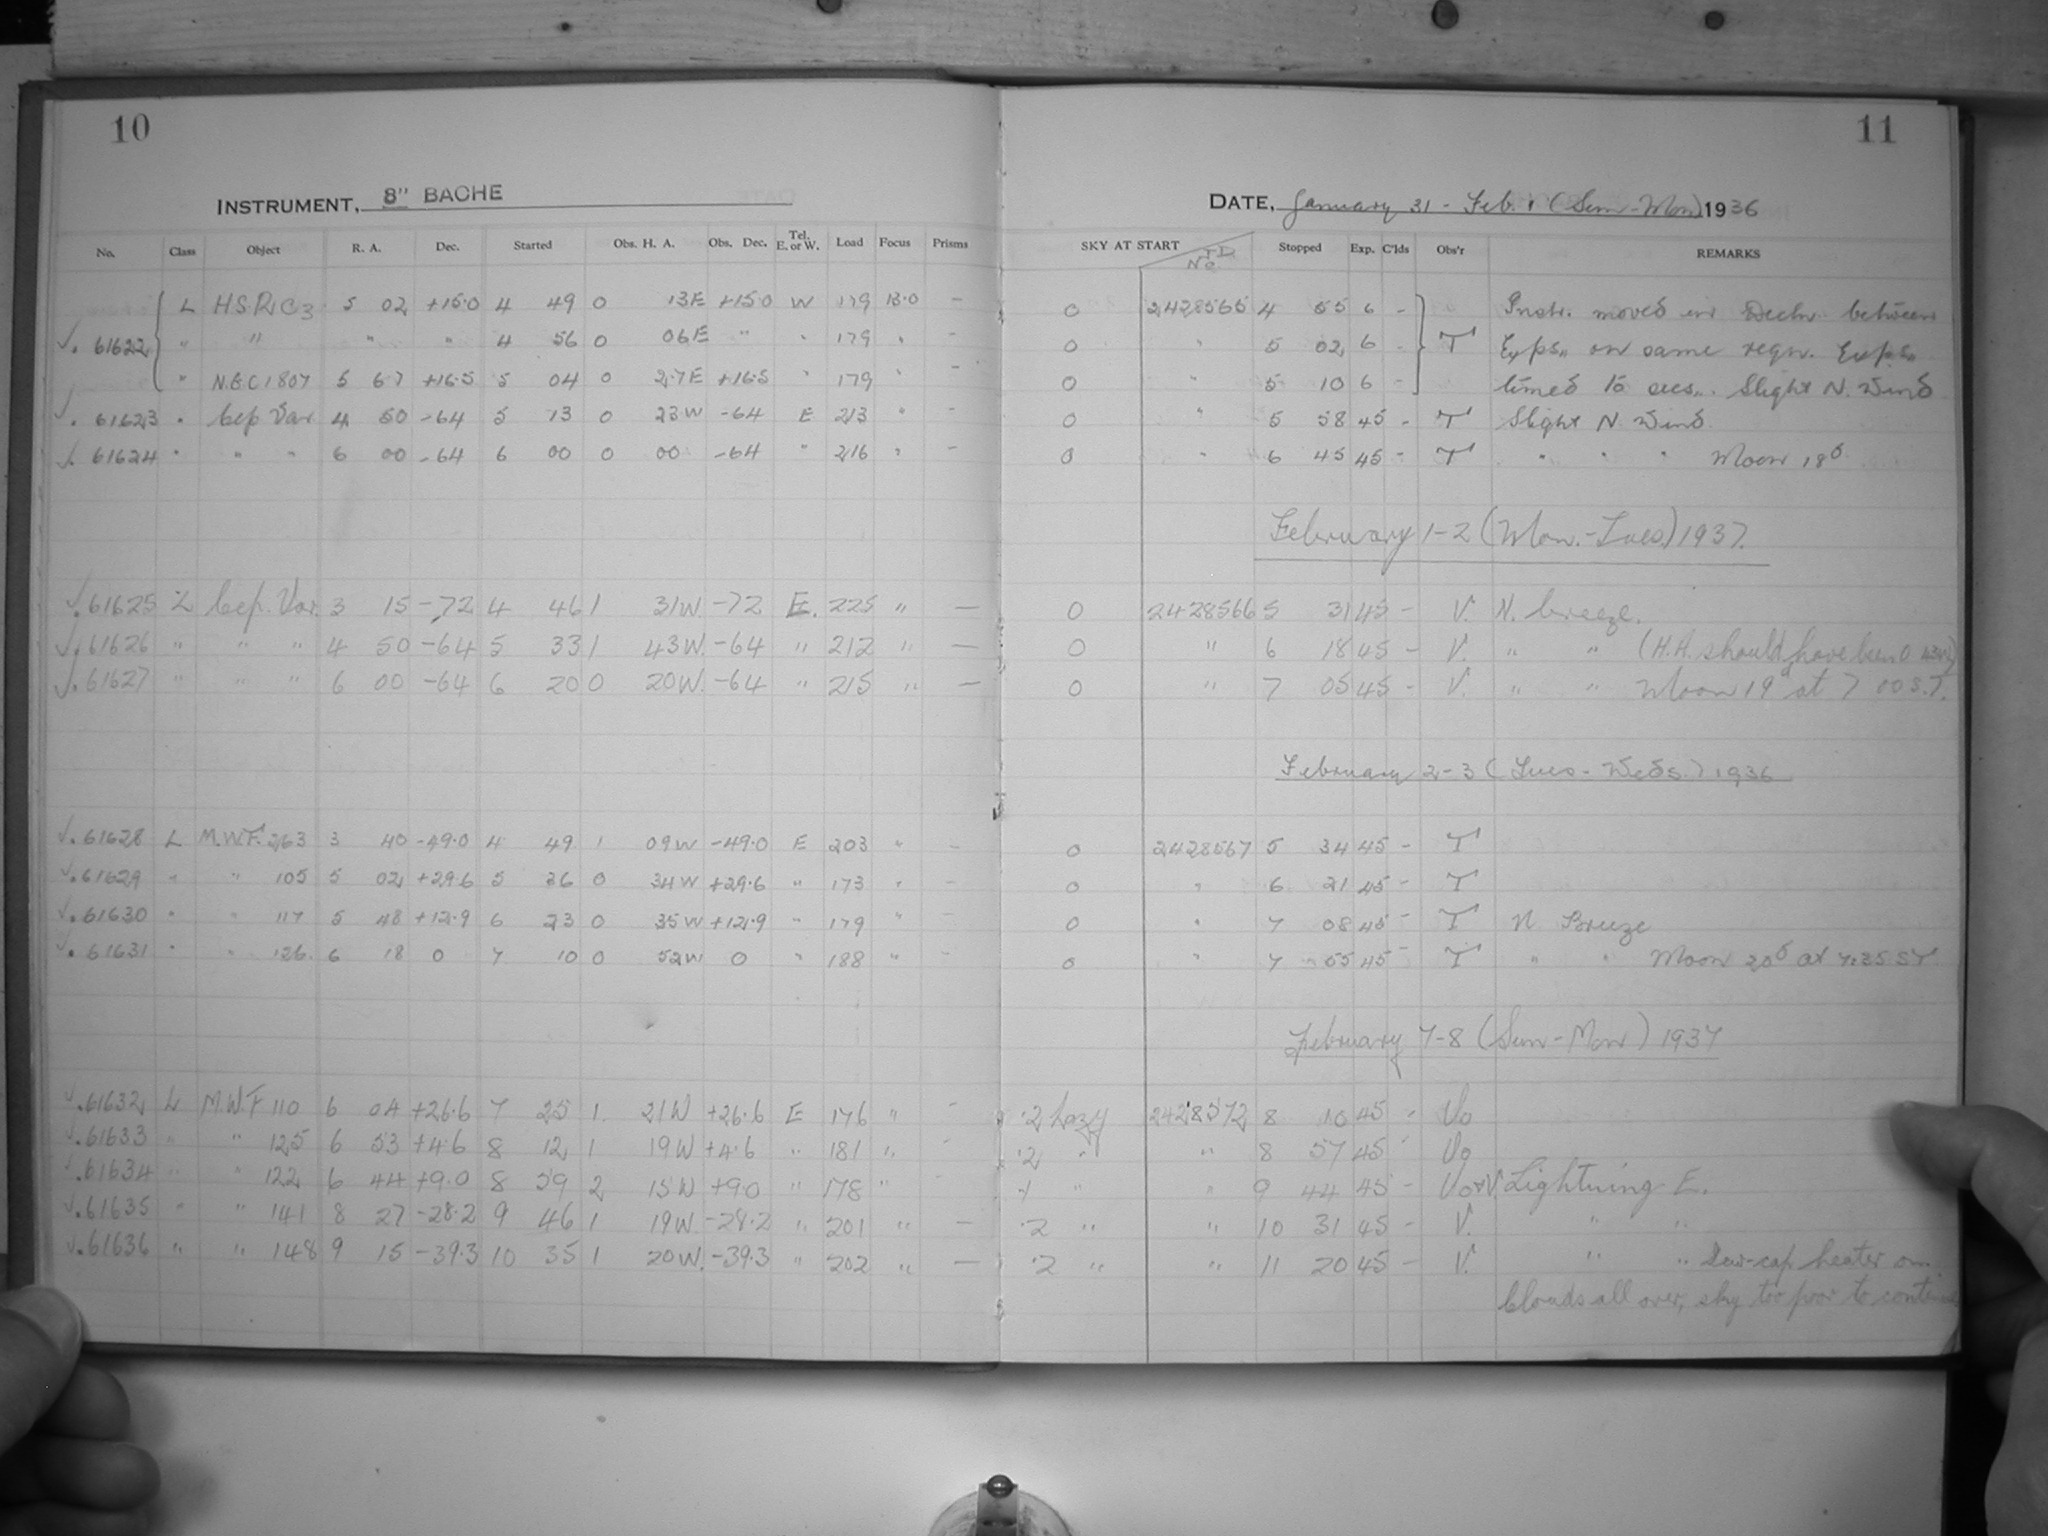 10
11
INSTRUMENT, 8" BACHE
DATE, January 31 - Feb. 1 (Sun - Mon) 1936
No. Class Object R. A. Dec. Started Obs. H. A. Obs. Dec. Tel. E. or W. Load Focus Prisms SKY AT START J D No. Stopped Exp. C'lds Obs'r REMARKS
L 5 02 +15.0 4 49 0 13E +15.0 W 179 13.0 - 0 2428565 4 55 6 - Instr. moved in Decln. between
√. 61622 " " " " 4 56 0 06E " " 179 " 0 " 5 02 6 - T Exps. on same regn. Exps.
" N.G.C 1807 5 +16.5 5 04 0 27E +16.5 " 179 " - 0 " 5 10 6 - timed to secs. Slight N. Wind
√. 61623 " Cep Var 4 50 -64 5 13 0 23W -64 E 213 " - 0 " 5 58 45 - T Slight N. Wind
√. 61624 " " " 6 00 -64 6 00 0 00 -64 " 216 " - 0 " 6 45 45 - T " " " Moon 18d
February 1-2 (Mon.-Tues.) 1937.
√. 61625 L Cep. Var. 3 15 -72 4 46 1 31W -72 E. 225 " - 0 2428566 5 31 45 - V. N. breeze.
√. 61626 " " " 4 50 -64 5 33 1 43W. -64 " 212 " - 0 " 6 18 45 - V. " " (H.A. should have been 0 43W)
√. 61627 " " " 6 00 -64 6 20 0 20W. -64 " 215 " - 0 " 7 05 45 - V. " " Moon 19d at 7 00 S.T.
February 2-3 (Tues - Weds.) 1936
√. 61628 L M.W.F. 263 3 40 -49.0 4 49 1 09W -49.0 E 203 " - 0 2428567 5 34 45 - T
√. 61629 " " 105 5 02 +29.6 5 36 0 34W +29.6 " 173 " - 0 " 6 21 45 - T
√. 61630 " " 117 5 48 +12.9 6 23 0 35W +12.9 " 179 " - 0 " 7 08 45 - T N Breeze
√. 61631 " " 126 6 18 0 7 10 0 52W 0 " 188 " - 0 " 7 55 45 - T " " Moon 20d at 7:35 ST
February 7-8 (Sun - Mon) 1937
√. 61632 L M.W.F 110 6 04 +26.6 7 25 1 21W +26.6 E 176 " - .2 hazy 2428572 8 10 45 - Vo
√. 61633 " " 125 6 53 +4.6 8 12 1 19W +4.6 " 181 " - .2 " " 8 57 45 - Vo
√. 61634 " " 122 6 44 +9.0 8 59 2 15W +9.0 " 178 " - .1 " " 9 44 45 - Vo+V Lightning E.
√. 61635 " " 141 8 27 -28.2 9 46 1 19W. -28.2 " 201 " - .2 " " 10 31 45 - V. " "
√. 61636 " " 148 9 15 -39.3 10 35 1 20W. -39.3 " 202 " - .2 " " 11 20 45 - V. " " Dew-cap heater on.
Clouds all over, sky too poor to continue